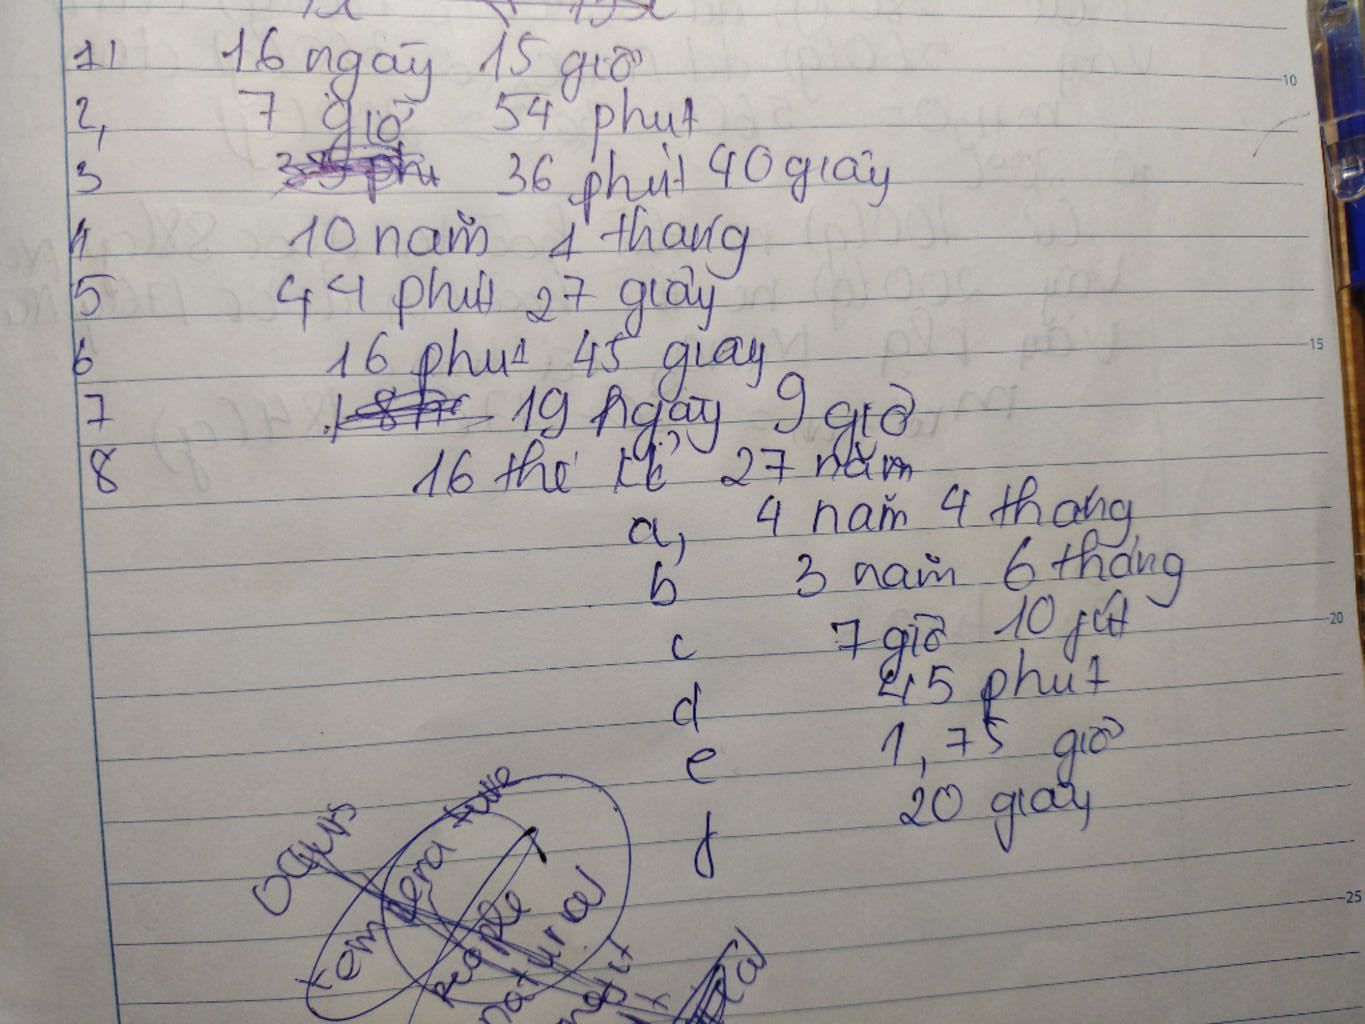 11 16 ngày 15 giờ
2, 7 giờ 54 phút
3 36 phút 40 giây
4 10 năm 1 tháng
5 44 phút 27 giây
6 16 phút 45 giây
7 19 ngày 9 giờ
8 16 thế kỉ 27 năm
a, 4 năm 4 tháng
b 3 năm 6 tháng
c 7 giờ 10
d 45 phút
e 1,75 giờ
f 20 giây
10
15
20
25
occurs
temperature
people
natural